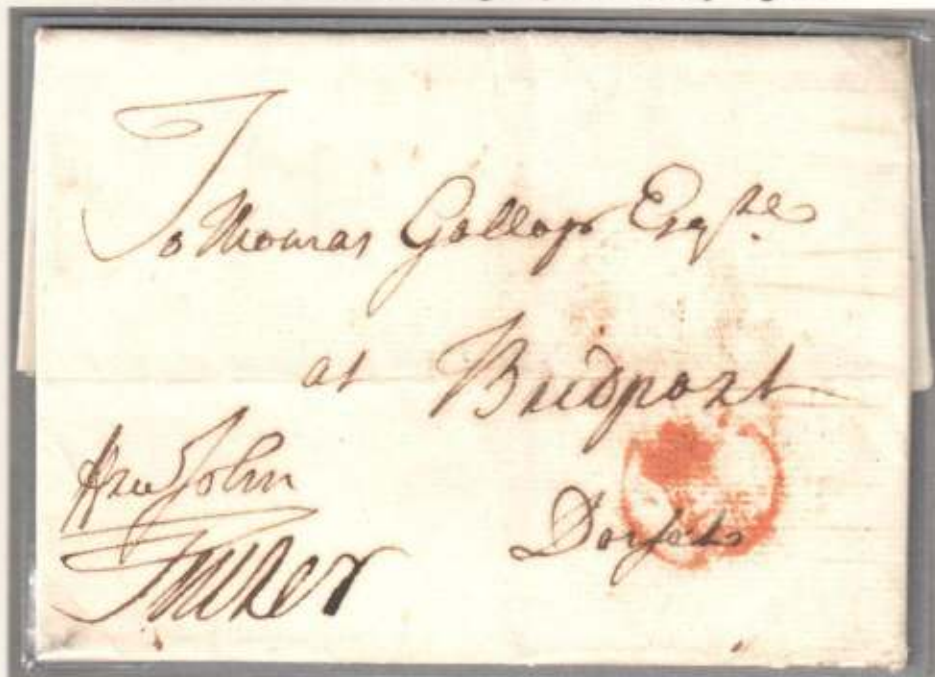 To Thomas Gollop Esq.re
at Bridport
Dorset
free John
Tucker